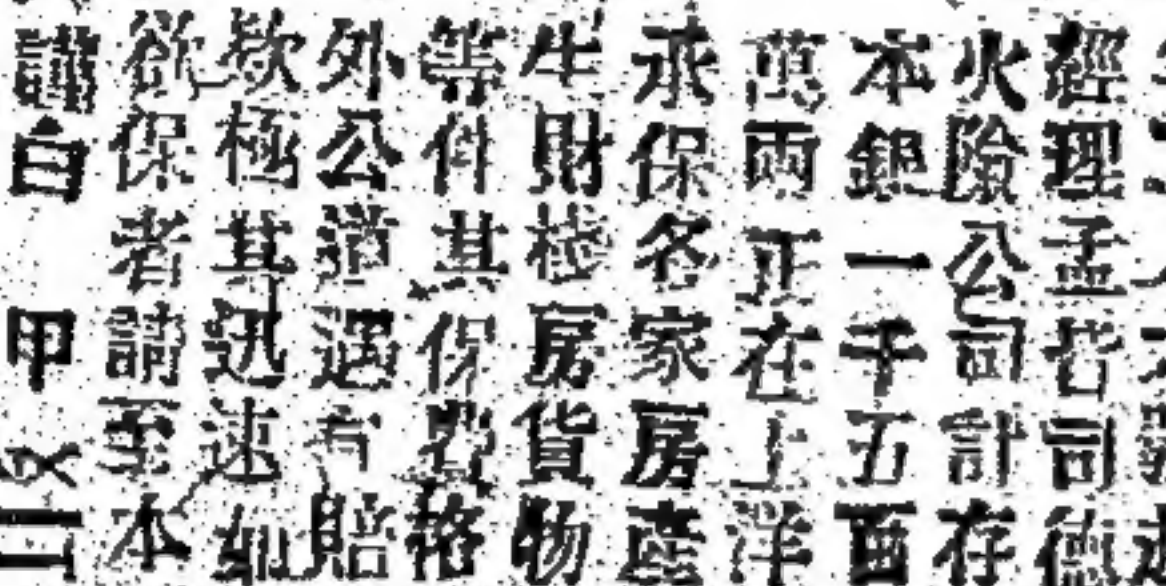 經理孟𠰥司德
火險公司計存
本銀一千五百
萬兩正在上洋
承保各家房產
生財棧房貨物
等件其保費格
外公道遇有賠
款極其迅速如
欲保者請至本
謹白　甲　二